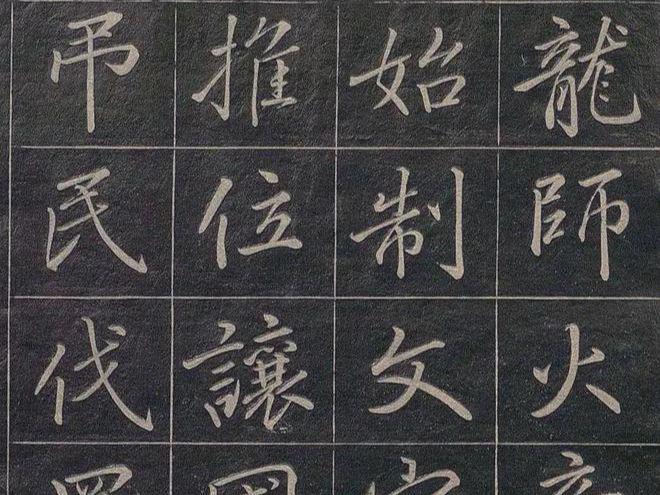 龍師火
始制文
推位讓
吊民伐